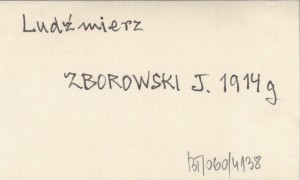 Ludźmierz
ZBOROWSKI J. 1914 g
BJ/060/4138